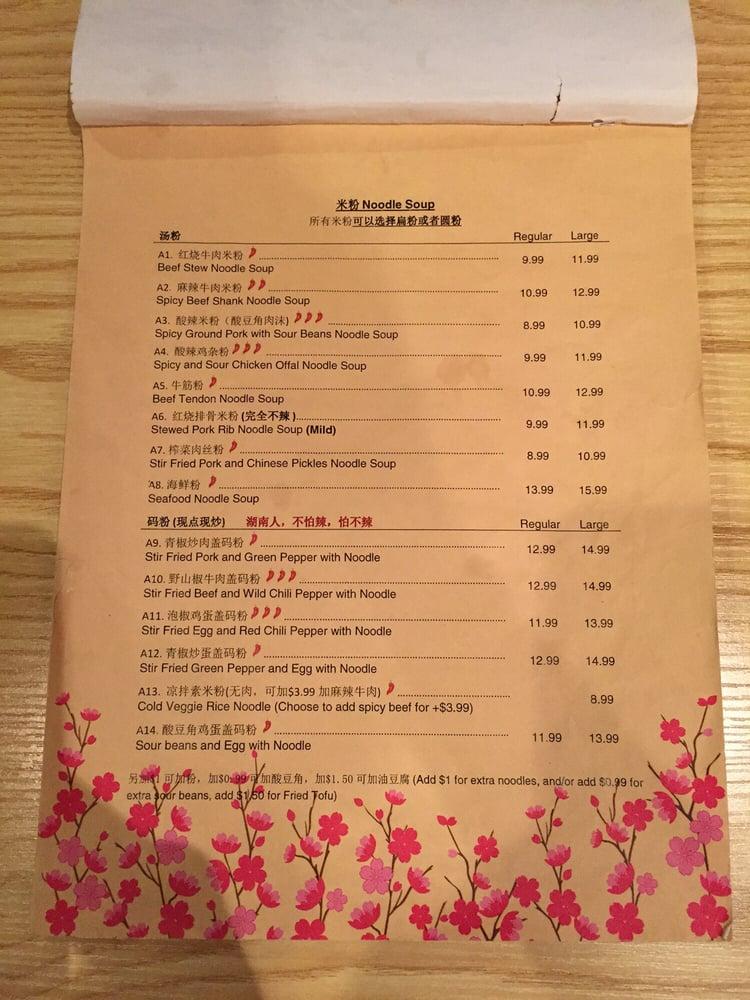 米粉 Noodle Soup
所有米粉可以选择扁粉或者圆粉
汤粉 Regular Large
A1. 红烧牛肉米粉 9.99 11.99
Beef Stew Noodle Soup
A2. 麻辣牛肉米粉 10.99 12.99
Spicy Beef Shank Noodle Soup
A3. 酸辣米粉（酸豆角肉沫) 8.99 10.99
Spicy Ground Pork with Sour Beans Noodle Soup
A4. 酸辣鸡杂粉 9.99 11.99
Spicy and Sour Chicken Offal Noodle Soup
A5. 牛筋粉 10.99 12.99
Beef Tendon Noodle Soup
A6. 红烧排骨米粉 (完全不辣) 9.99 11.99
Stewed Pork Rib Noodle Soup (Mild)
A7. 榨菜肉丝粉 8.99 10.99
Stir Fried Pork and Chinese Pickles Noodle Soup
A8. 海鲜粉 13.99 15.99
Seafood Noodle Soup
码粉 (现点现炒) 湖南人，不怕辣，怕不辣 Regular Large
A9. 青椒炒肉盖码粉 12.99 14.99
Stir Fried Pork and Green Pepper with Noodle
A10. 野山椒牛肉盖码粉 12.99 14.99
Stir Fried Beef and Wild Chili Pepper with Noodle
A11. 泡椒鸡蛋盖码粉 11.99 13.99
Stir Fried Egg and Red Chili Pepper with Noodle
A12. 青椒炒蛋盖码粉 12.99 14.99
Stir Fried Green Pepper and Egg with Noodle
A13. 凉拌素米粉(无肉，可加$3.99 加麻辣牛肉) 8.99
Cold Veggie Rice Noodle (Choose to add spicy beef for +$3.99)
A14. 酸豆角鸡蛋盖码粉 11.99 13.99
Sour beans and Egg with Noodle
另加$1 可加粉，加$0.99 可加酸豆角，加$1.50 可加油豆腐 (Add $1 for extra noodles, and/or add $0.99 for
extra sour beans, add $1.50 for Fried Tofu)